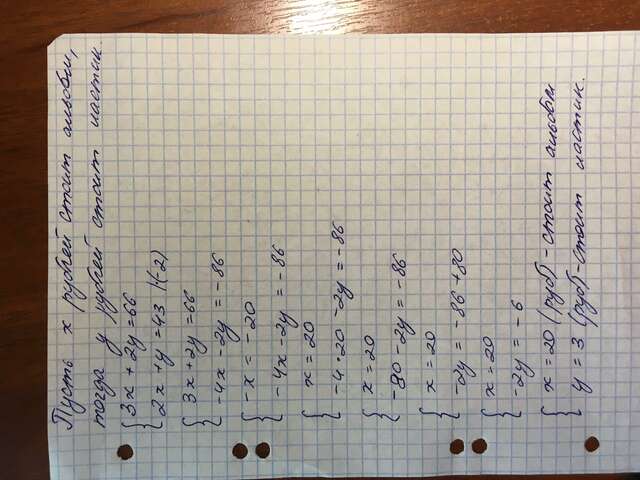 Пусть x рублей стоит альбом,
тогда y рублей стоит ластик.
{3x + 2y = 66
2x + y = 43 |(-2)
{3x + 2y = 66
-4x - 2y = -86
{-x = -20
-4x - 2y = -86
{x = 20
-4 · 20 - 2y = -86
{x = 20
-80 - 2y = -86
{x = 20
-2y = -86 + 80
{x = 20
-2y = -6
{x = 20 (руб) - стоит альбом
y = 3 (руб) - стоит ластик.